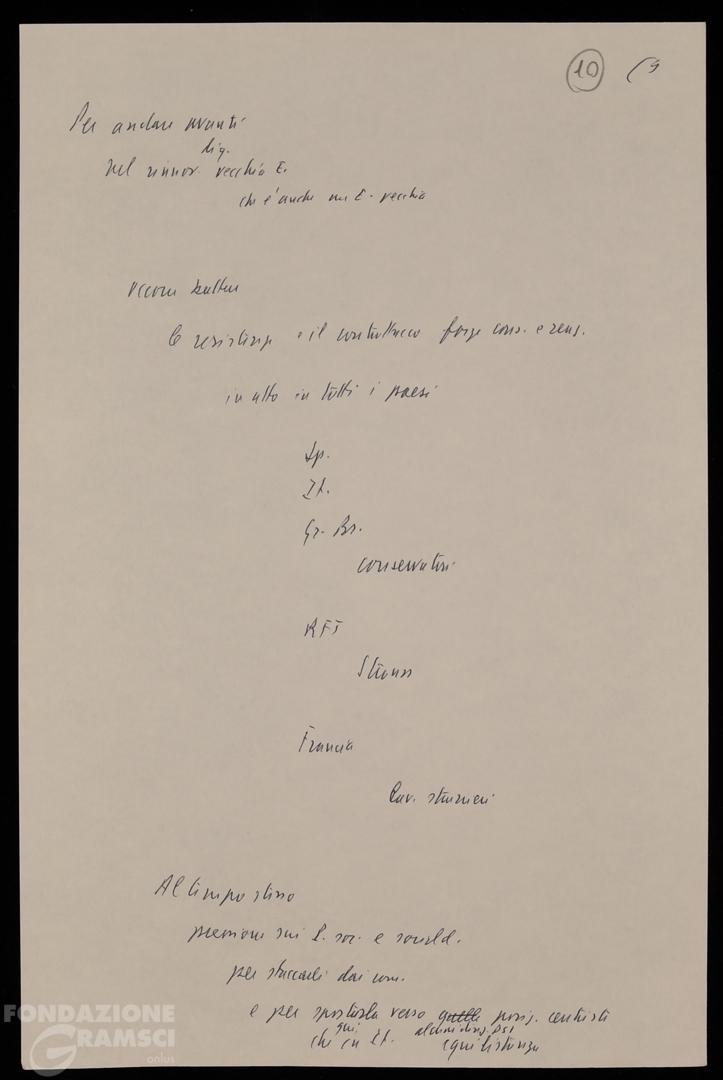 10 (9
Per andare avanti
liq.
nel rinnov. vecchia E.
che è anche una E. vecchia
occorre battere
la resistenza e il contrattacco forze cons. e reaz.
in atto in tutti i paesi
Sp.
It.
Gr. Br.
conservatori
RFT
Strauss
Francia
Lav. stranieri
Al tempo stesso
pressione sui P. soc. e socxld.
per staccarli dai com.
e per spostarli verso quelle posiz. centriste
che qui in It. alcuni dirig. PSI
equidistanza
FONDAZIONE
GRAMSCI
onlus